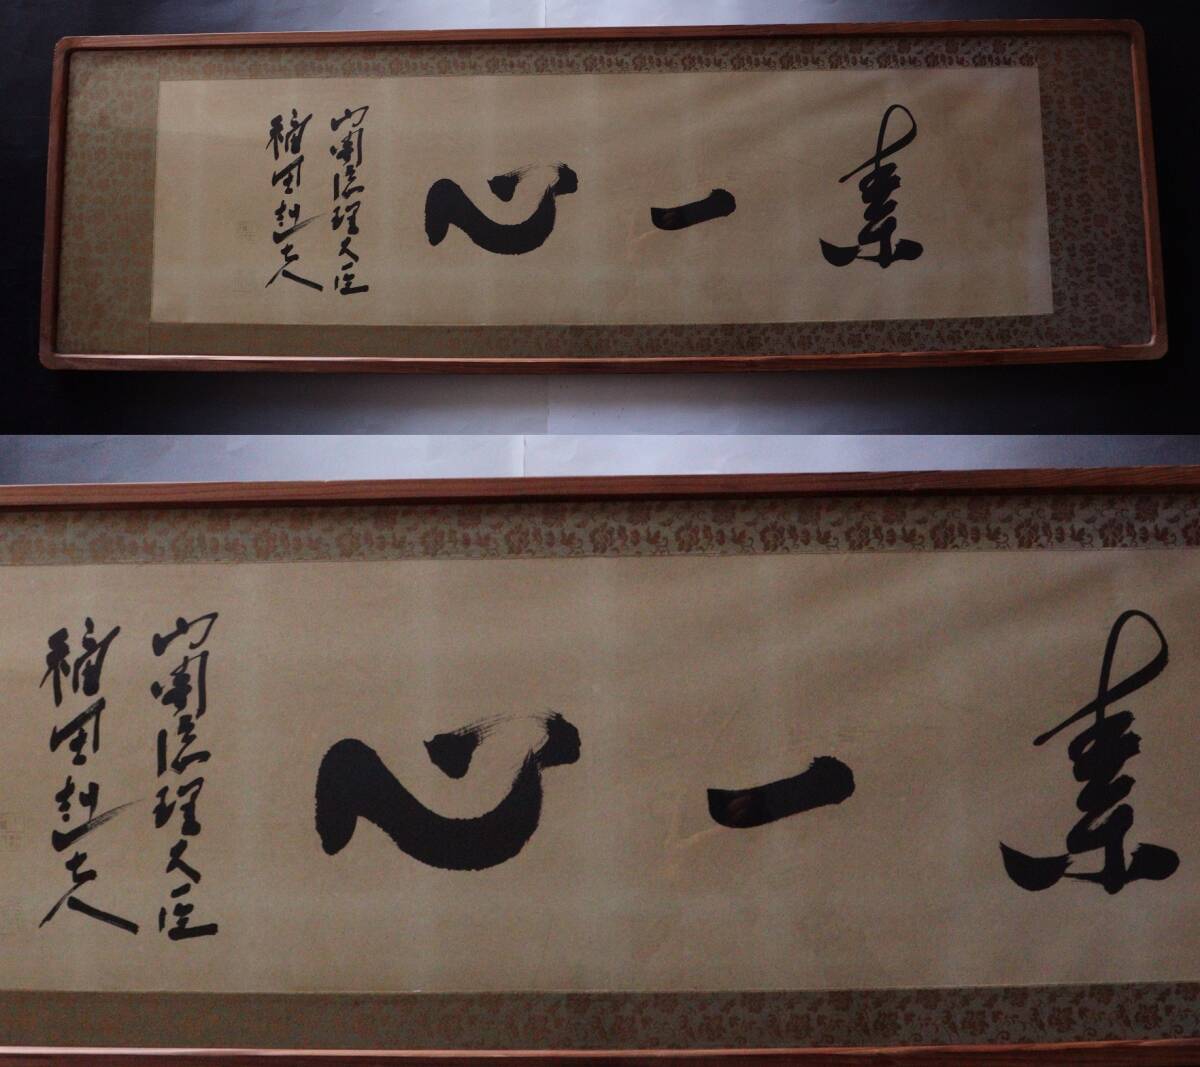 素一心
内閣総理大臣
福田赳夫
素一心
内閣総理大臣
福田赳夫